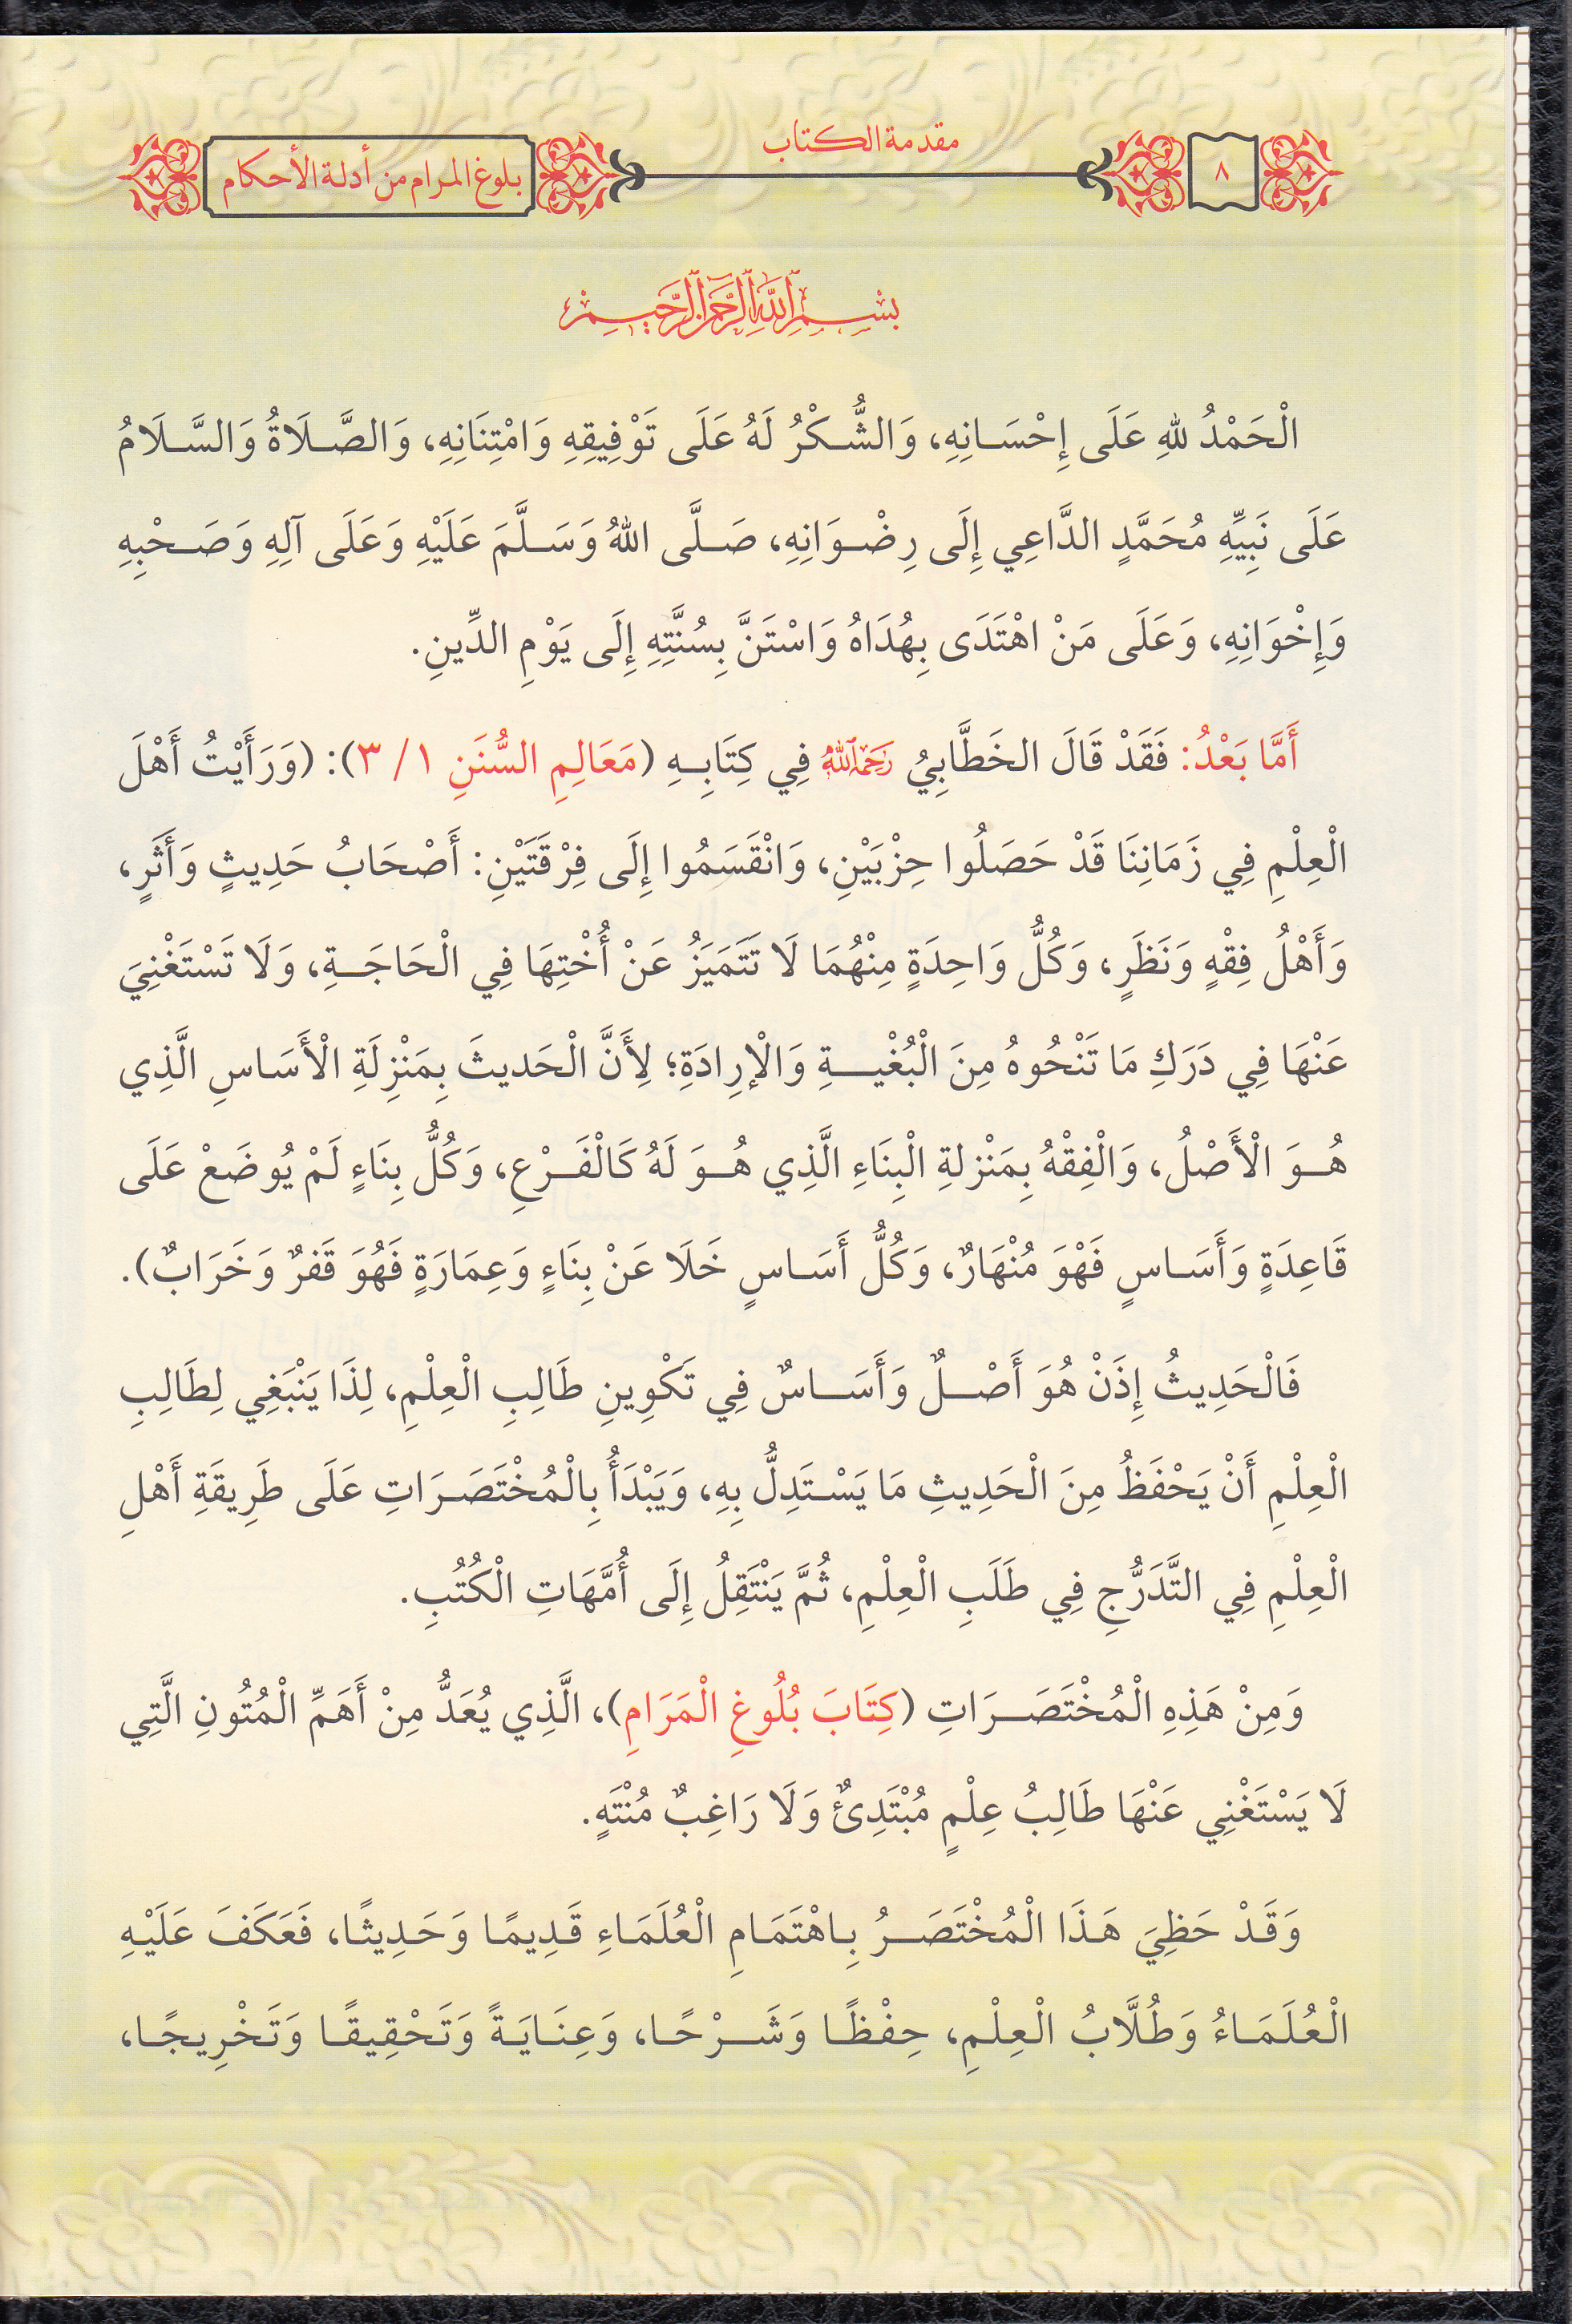 ٨
مقدمة الكتاب
بلوغ المرام من أدلة الأحكام
بِسْمِ اللَّهِ الرَّحْمَنِ الرَّحِيمِ
الْحَمْدُ لِلهِ عَلَى إِحْسَانِهِ، وَالشُّكْرُ لَهُ عَلَى تَوْفِيقِهِ وَامْتِنَانِهِ، وَالصَّلَاةُ وَالسَّلَامُ
عَلَى نَبِيِّهِ مُحَمَّدٍ الدَّاعِي إِلَى رِضْوَانِهِ، صَلَّى اللهُ وَسَلَّمَ عَلَيْهِ وَعَلَى آلِهِ وَصَحْبِهِ
وَإِخْوَانِهِ، وَعَلَى مَنْ اهْتَدَى بِهُدَاهُ وَاسْتَنَّ بِسُنَّتِهِ إِلَى يَوْمِ الدِّينِ.
أَمَّا بَعْدُ: فَقَدْ قَالَ الخَطَّابِيُ رَحِمَهُ اللَّهُ فِي كِتَابِهِ (مَعَالِمِ السُّنَنِ ١/ ٣): (وَرَأَيْتُ أَهْلَ
الْعِلْمِ فِي زَمَانِنَا قَدْ حَصَلُوا حِزْبَيْنِ، وَانْقَسَمُوا إِلَى فِرْقَتَيْنِ: أَصْحَابُ حَدِيثٍ وَأَثَرٍ،
وَأَهْلُ فِقْهٍ وَنَظَرٍ، وَكُلُّ وَاحِدَةٍ مِنْهُمَا لَا تَتَمَيَزُ عَنْ أُخْتِهَا فِي الْحَاجَةِ، وَلَا تَسْتَغْنِيَ
عَنْهَا فِي دَرَكِ مَا تَنْحُوهُ مِنَ الْبُغْيَةِ وَالْإرِادَةِ؛ لِأَنَّ الْحَديثَ بِمَنْزِلَةِ الْأَسَاسِ الَّذِي
هُوَ الْأَصْلُ، وَالْفِقْهُ بِمَنْزلةِ الْبِنَاءِ الَّذِي هُوَ لَهُ كَالْفَرْعِ، وَكُلُّ بِنَاءٍ لَمْ يُوضَعْ عَلَى
قَاعِدَةٍ وَأَسَاسٍ فَهْوَ مُنْهَارٌ، وَكُلُّ أَسَاسٍ خَلَا عَنْ بِنَاءٍ وَعِمَارَةٍ فَهُوَ قَفرٌ وَخَرَابٌ).
فَالْحَدِيثُ إِذَنْ هُوَ أَصْلٌ وَأَسَاسٌ فِي تَكْوِينِ طَالِبِ الْعِلْمِ، لِذَا يَنْبَغِي لِطَالِبِ
الْعِلْمِ أَنْ يَحْفَظُ مِنَ الْحَدِيثِ مَا يَسْتَدِلُّ بِهِ، وَيَبْدَأُ بِالْمُخْتَصَرَاتِ عَلَى طَرِيقَةِ أَهْلِ
الْعِلْمِ فِي التَّدَرُّجِ فِي طَلَبِ الْعِلْمِ، ثُمَّ يَنْتَقِلُ إِلَى أُمَّهَاتِ الْكُتُبِ.
وَمِنْ هَذِهِ الْمُخْتَصَرَاتِ (كِتَابَ بُلُوغِ الْمَرَامِ)، الَّذِي يُعَدُّ مِنْ أَهَمِّ الْمُتُونِ الَّتِي
لَا يَسْتَغْنِي عَنْهَا طَالِبُ عِلْمٍ مُبْتَدِئٌ وَلَا رَاغِبٌ مُنْتَهٍ.
وَقَدْ حَظِيَ هَذَا الْمُخْتَصَرُ بِاهْتَمَامِ الْعُلَمَاءِ قَدِيمًا وَحَدِيثًا، فَعَكَفَ عَلَيْهِ
الْعُلَمَاءُ وَطُلَّابُ الْعِلْمِ، حِفْظًا وَشَرْحًا، وَعِنَايَةً وَتَحْقِيقًا وَتَخْرِيجًا،